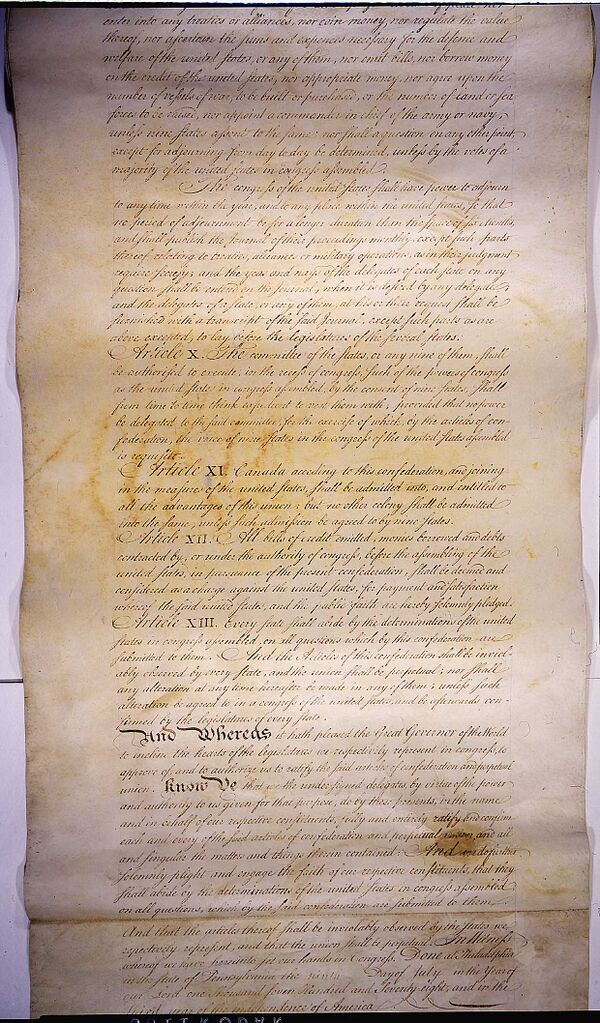 enter into any treaties or alliances, nor coin money, nor regulate the value
thereof, nor ascertain the sums and expences necessary for the defence and
welfare of the united states, or any of them, nor emit bills, nor borrow money
on the credit of the united states, nor appropriate money, nor agree upon the
number of vessels of war, to be built or purchased, or the number of land or sea
forces to be raised, nor appoint a commander in chief of the army or navy,
unless nine states assent to the same: nor shall a question on any other point,
except for adjourning from day to day be determined, unless by the votes of a
majority of the united states in congress assembled.
The congress of the united states shall have power to adjourn
to any time within the year, and to any place within the united states, so that
no period of adjournment be for a longer duration than the space of six Months,
and shall publish the Journal of their proceedings monthly, except such parts
thereof relating to treaties, alliances or military operations, as in their judgment
require secresy; and the yeas and nays of the delegates of each state on any
question shall be entered on the Journal, when it is desired by any delegate;
and the delegates of a state, or any of them, at his or their request shall be
furnished with a transcript of the said Journal, except such parts as are
above excepted, to lay before the legislatures of the several states.
Article X. The committee of the states, or any nine of them, shall
be authorised to execute, in the recess of congress, such of the powers of congress
as the united states in congress assembled, by the consent of nine states, shall
from time to time think expedient to vest them with; provided that no power
be delegated to the said committee, for the exercise of which, by the articles of con-
federation, the voice of nine states in the congress of the united states assembled
is requisite.
Article XI. Canada acceding to this confederation, and joining
in the measures of the united states, shall be admitted into, and entitled to
all the advantages of this union: but no other colony shall be admitted
into the same, unless such admission be agreed to by nine states.
Article XII. All bills of credit emitted, monies borrowed and debts
contracted by, or under the authority of congress, before the assembling of the
united states, in pursuance of the present confederation, shall be deemed and
considered as a charge against the united states, for payment and satisfaction
whereof the said united states, and the public faith are hereby solemnly pledged.
Article XIII. Every state shall abide by the determinations of the united
states in congress assembled, on all questions which by this confederation are
submitted to them. And the Articles of this confederation shall be inviol-
ably observed by every state, and the union shall be perpetual; nor shall
any alteration at any time hereafter be made in any of them; unless such
alteration be agreed to in a congress of the united states, and be afterwards con-
firmed by the legislatures of every state.
And Whereas it hath pleased the Great Governor of the World
to incline the hearts of the legislatures we respectively represent in congress, to
approve of, and to authorize us to ratify the said articles of confederation and perpetual
union. Know Ye that we the undersigned delegates, by virtue of the power
and authority to us given for that purpose, do by these presents, in the name
and in behalf of our respective constituents, fully and entirely ratify and confirm
each and every of the said articles of confederation and perpetual union, and all
and singular the matters and things therein contained: And we do further
solemnly plight and engage the faith of our respective constituents, that they
shall abide by the determinations of the united states in congress assembled
on all questions, which by the said confederation are submitted to them.
And that the articles thereof shall be inviolably observed by the states we
respectively represent, and that the union shall be perpetual. In Witness
whereof we have hereunto set our hands in Congress. Done at Philadelphia
in the state of Pennsylvania the ninth Day of July in the Year of
our Lord one Thousand seven Hundred and Seventy-eight, and in the
third year of the independence of America